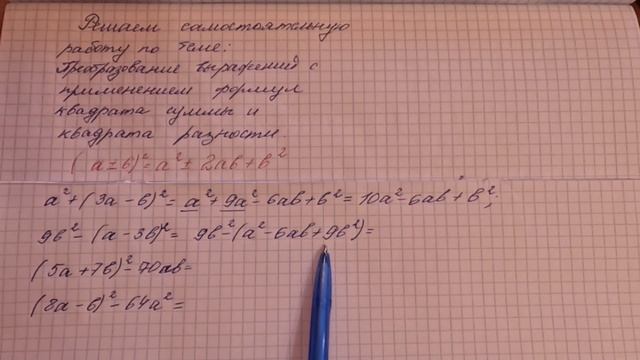 Решаем самостоятельную
работу по теме:
Преобразование выражений с
применением формул
квадрата суммы и
квадрата разности.
(a±b)²=a²±2ab+b²
a²+(3a-b)²=a²+9a²-6ab+b²=10a²-6ab+b²;
9b²-(a-3b)²=9b²-(a²-6ab+9b²)=
(5a+7b)²-70ab=
(8a-b)²-64a²=